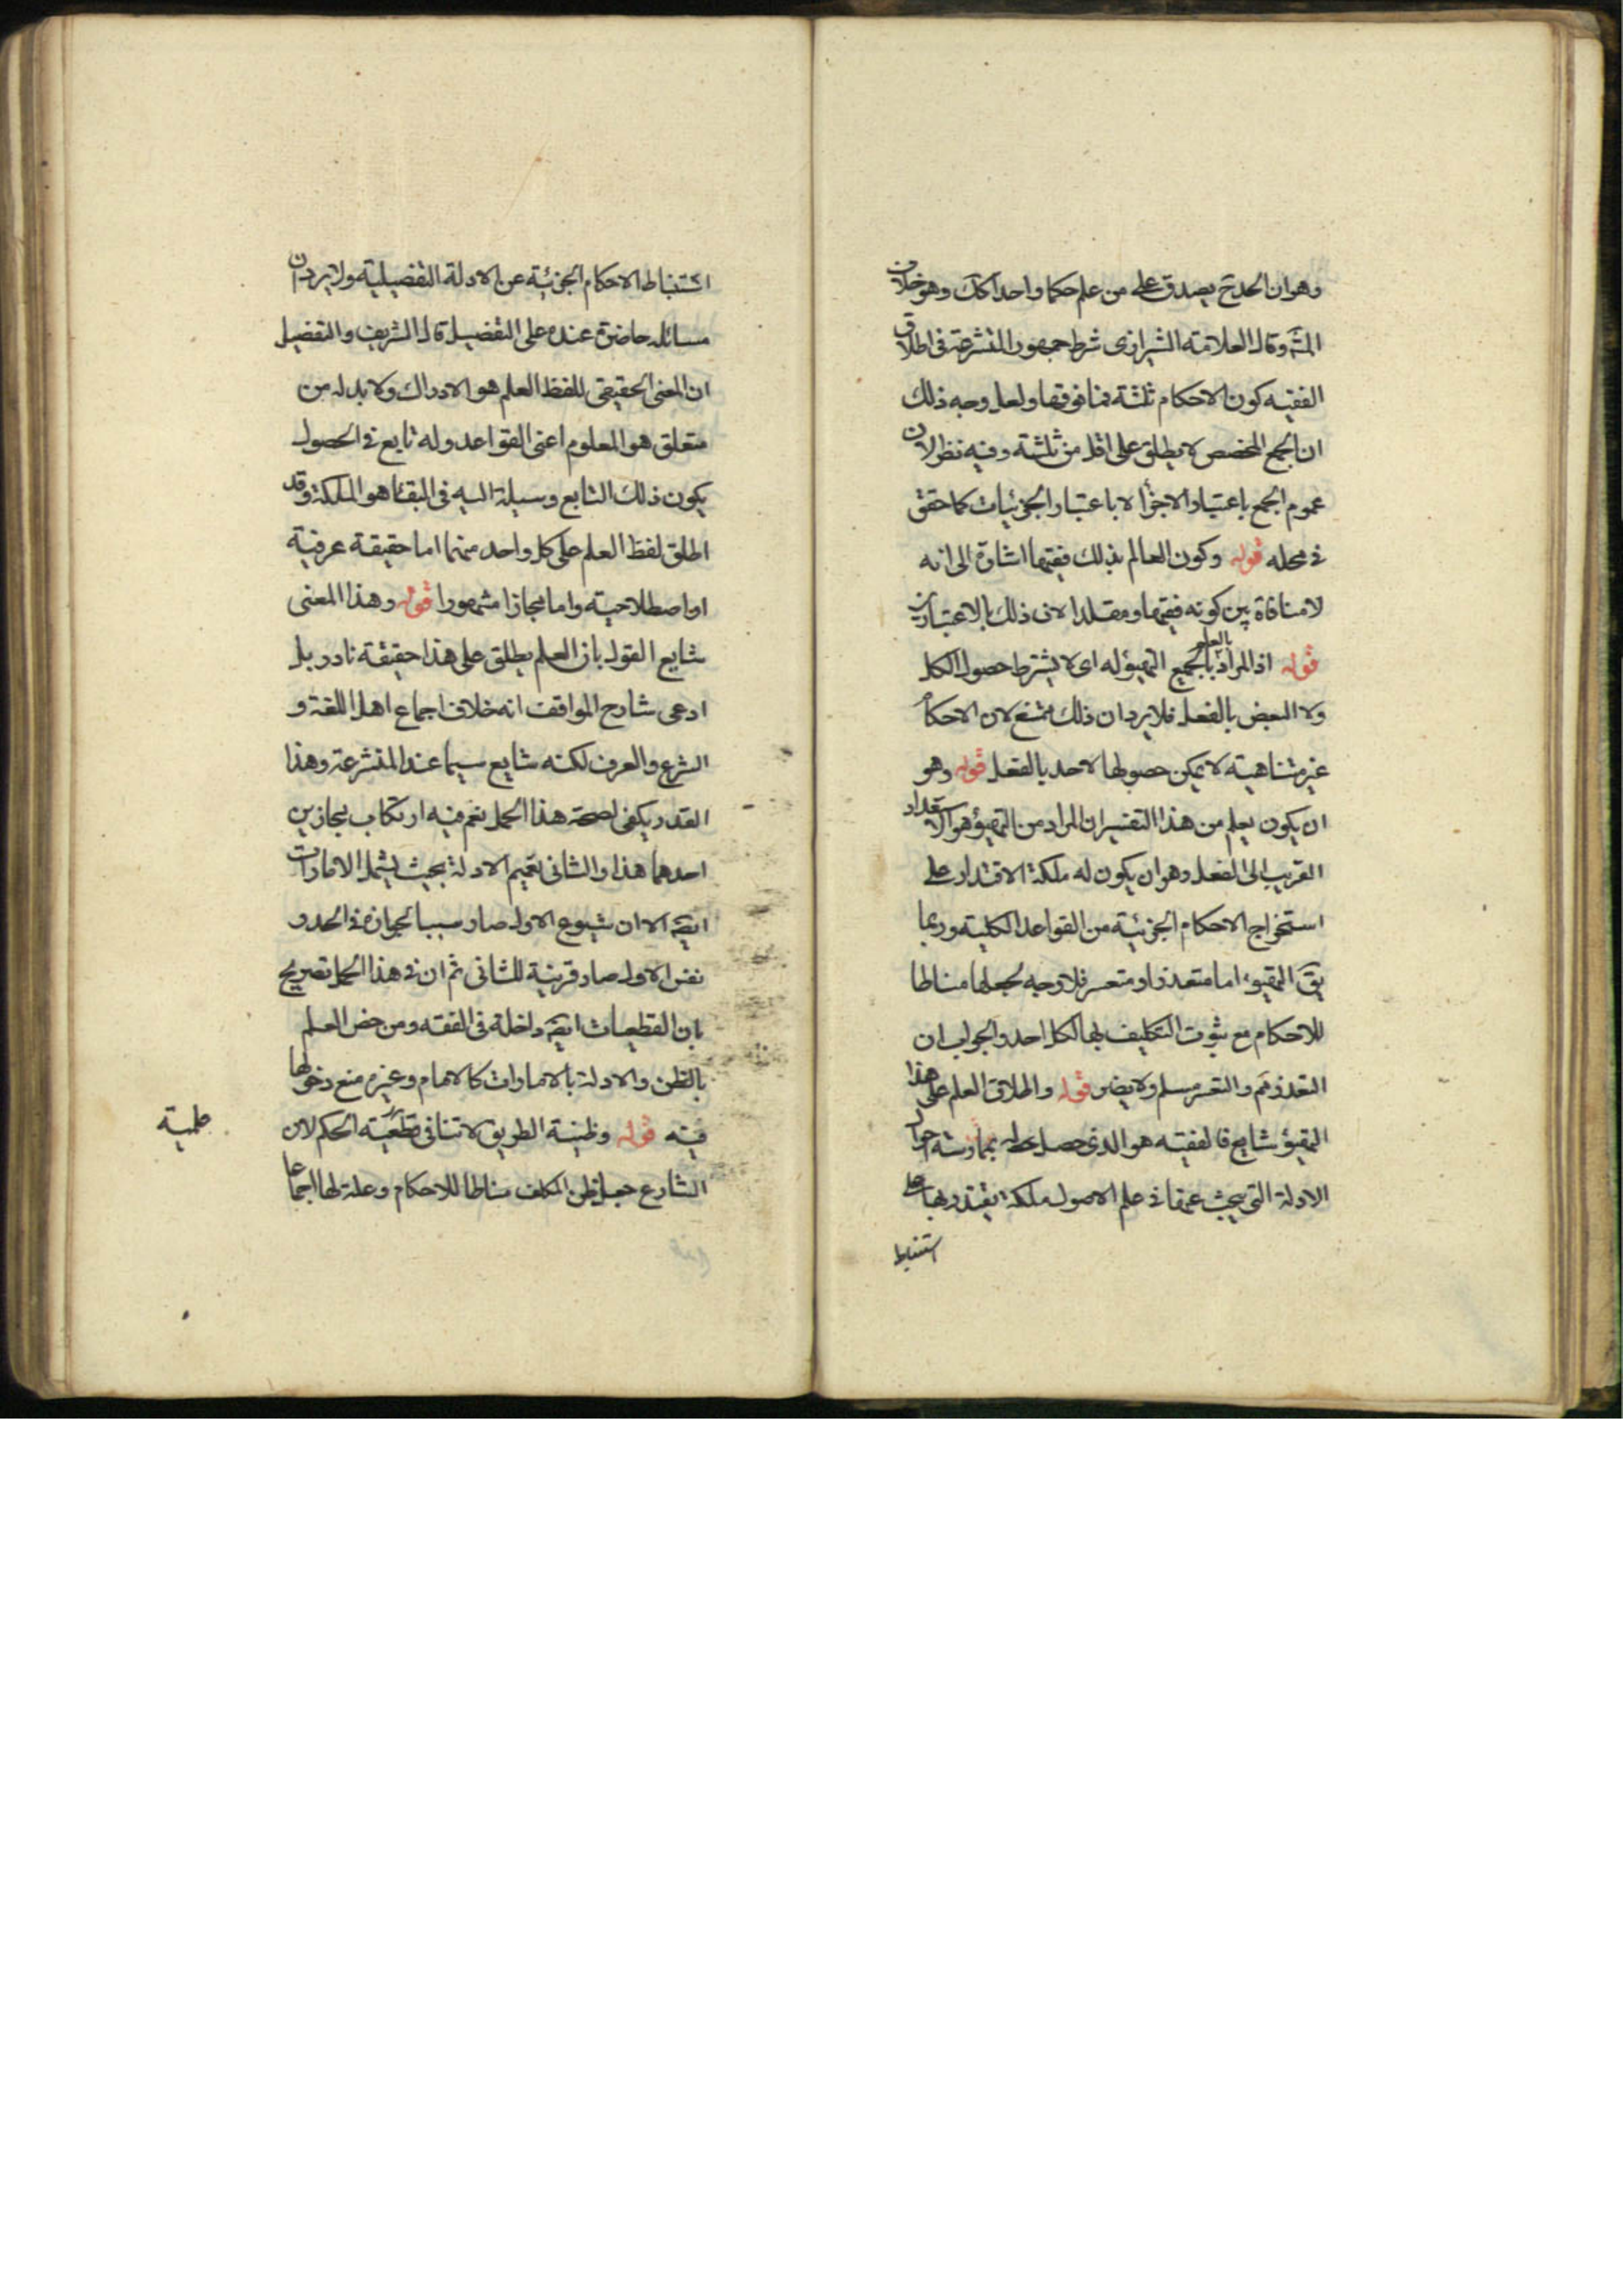 وهو ان الحد ح يصدق على من علم حكما واحدا كك وهو خلاف
المشهَ وقال العلامة الشيرازى شرط جمهور المتشرعة فى اطلاق
الفقيه كون الاحكام ثلثة فما فوقها ولعل وجه ذلك
ان الجمع المخصص لا يطلق على اقل من ثلثة وفيه نظر لان
عموم الجمع باعتبار الاجزأ لا باعتبار الجزئيات كما حقق
فى محله قوله وكون العالم بذلك فقيها اشارة الى انه
لا منافاة بين كونه فقيها ومقلدا لانى ذلك بالاعتبارين
قوله اذ المراد بالعلم بالجميع التهيؤ له اى لا يشترط حصول الكل
ولا البعض بالفعل فلا يرد ان ذلك ممتنع لان الاحكام
غير متناهية لا يمكن حصولها لاحد بالفعل قوله وهو
ان يكون يعلم من هذا التفسير ان المراد من التهيؤ هو الاستعداد
القريب الى الفعل وهو ان يكون له ملكة الاقتدار على
استخراج الاحكام الجزئية من القواعد الكلية وربما
يقَ التهيؤ اما متعذر او متعسر فلا وجه لجعلها مناطا
للاحكام مع ثبوت التكليف بها لكل احد والجواب ان
التعذر مَم والتعسر مسلم ولا يضر قوله واطلاق العلم على هذا
التهيؤ شايع فالفقيه هو الذى حصل له بممارسته احوال
الادلة التى يبحث عنها فى علم الاصول ملكة يقتدر بها على
استنباط
استنباط الاحكام الجزئية عن الادلة التفضيلية ولا يرد ان
مسائله حاضرة عنده على التفضيل قال الشريف والتفضيل
ان المعنى الحقيقى للفظ العلم هو الادراك ولا بد له من
متعلق هو المعلوم اعنى القواعد وله تابع فى الحصول
يكون ذلك التابع وسيلة اليه فى البقاء هو الملكة وقد
اطلق لفظ العلم على كل واحد منهما اما حقيقة عرفية
او اصطلاحية واما مجازا مشهورا قوله وهذا المعنى
شايع القول بان العلم يطلق على هذا حقيقة نادر بل
ادعى شارح المواقف انه خلاف اجماع اهل اللغة و
الشرع والعرف لكنه شايع سيما عند المتشرعة وهذا
القدر يكفى لصحة هذا الحمل نعم فيه ارتكاب مجازين
احدهما هذا والثانى تعميم الادلة بحيث يشمل الامارات
ايضَ الا ان شيوع الاول صار سببا لجوازه فى الحد و
نفس الاول صار قرينة للثانى ثم ان فى هذا الحمل تصريح
بان القطعيات ايضَ داخلة فى الفقه ومن خص العلم
بالظن والادلة بالامارات كالامام وغيره منع دخولها
فيه قوله وظنية الطريق لا تنافى قطعية الحكم لان
علمية
الشارع جعل ظن المكلف مناطا للاحكام وعلة لها اجماعا